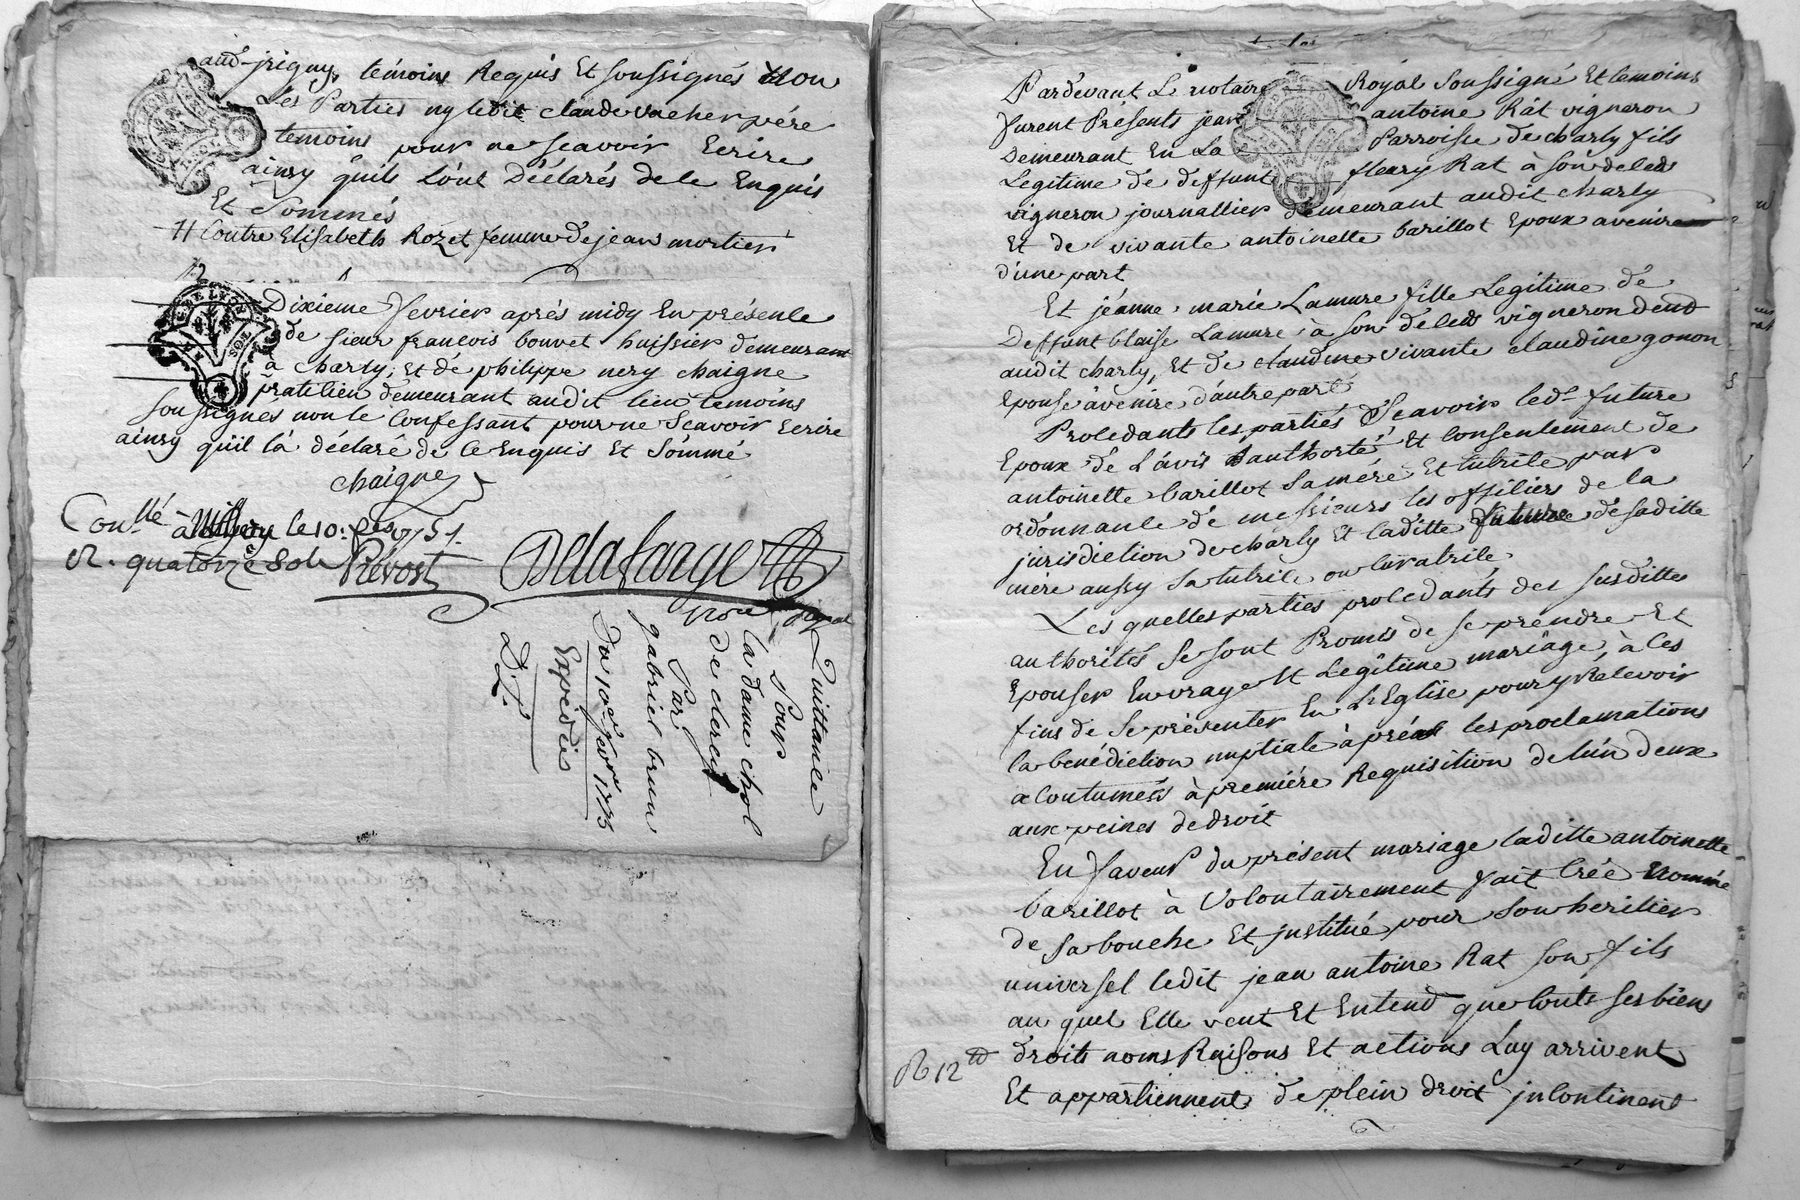 audt jrigny, témoins Requis Et soussignés Non
Les Parties ny ledit claude vacher pére
temoins pour ne scavoir Ecrire
ainsy quils L'ont Déclarés de le Enquis
Et Sommés
contre Elisabeth Rozet femme de jean mortier
Dixieme fevrier aprés midy En présence
de sieur françois bouvet huissier demeurant
à charly, Et dé philippe nery chaigne
pratcien démeurant audit lieu temoins
soussignés non le Confessant pour ne scavoir Ecrire
ainsy qu'il la déclaré de Ce Enquis Et Sommé
chaigne
Conllé à le 10e. 1751.
R. quatorze Sols Prévost
Delafarge
Nore Royal
Quittance
Pour
la dame chol
de clerc
Par
gabriel brun
Du 10e fevr 1775
Expediée
D.L.
Pardevant Le notaire Royal Soussigné Et temoins
furent Présents jean antoine Rat vigneron
Demeurant En La Parroisse de charly fils
Legitime de deffunt fleury Rat à son deced
vigneron journallier demeurant audit charly
Et de vivante antoinette barillot Epoux avenir
d'une part
Et jéanne marie Lamure fille Legitime de
Deffunt blaise Lamure à son déced vigneron demt
audit charly, Et de claudine vivante claudine gonon
Epouse àvenire d'autre part
Procedants les partiés Scavoir led. future
Epoux dé L'avis authorté Et Consentement de
antoinette barillot Sa mére Et tutrice par
ordonnance de messieurs les officiers de la
jurisdiction de charly Et laditte future de saditte
mére aussy sa tutrice ou Curatrice
Les quelles parties procedants des susdittes
authorités se sont Promis de se prendre Et
Epouser En vraye Et Legitime mariage, à Ces
fins de se présenter En L'Eglise pour y Recevoir
la bénédiction nuptiale àprés les proclamations
acoutumées à première Requisition de l'un deux
aux peines de droit
En faveur du présent mariage laditte antoinette
barillot à Volontairement fait Créé Nommé
de sa bouche Et justitué pour Son heritier
universel ledit jean antoine Rat son fils
au quel Elle veut Et Entend que touts ses biens
R 12 droits noms Raisons Et actions Luy arrivent
Et appartiennent de plein droit jncontinent